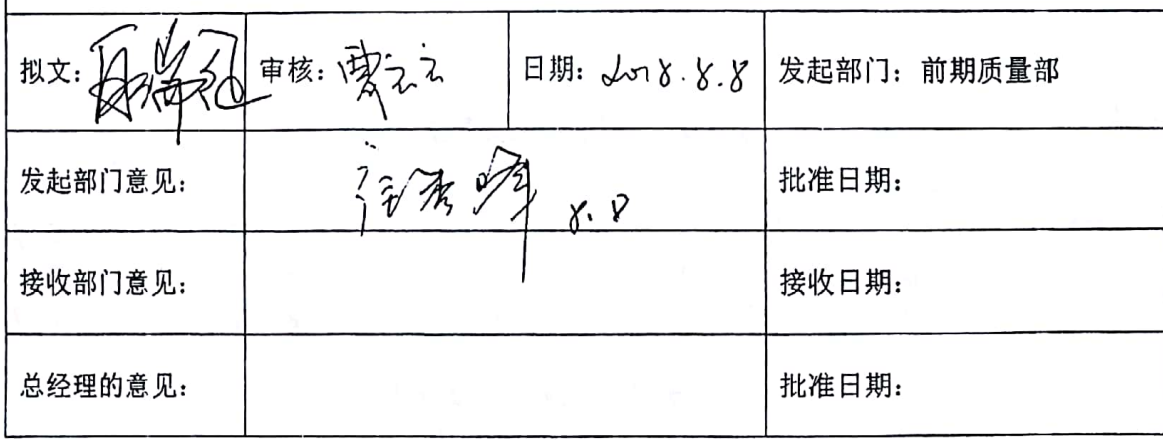 拟文： 审核：贾云云 日期：2018.8.8 发起部门：前期质量部
发起部门意见： 8.8 批准日期：
接收部门意见： 接收日期：
总经理的意见： 批准日期：